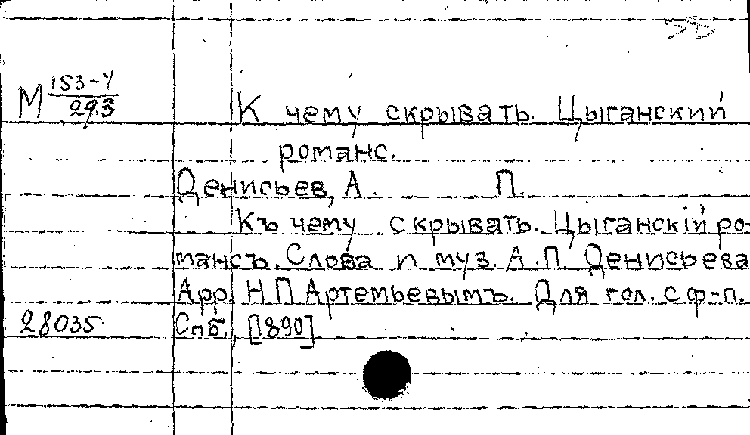 М 153-У/293
К чему скрывать. Цыганский
романс.
Денисьев, А. П.
Къ чему скрывать. Цыганскій ро-
мансъ. Слова и муз. А.П. Денисьева
Арр. Н.П Артемьевымъ. Для гол. с ф-п.
28035 Спб., [1890]